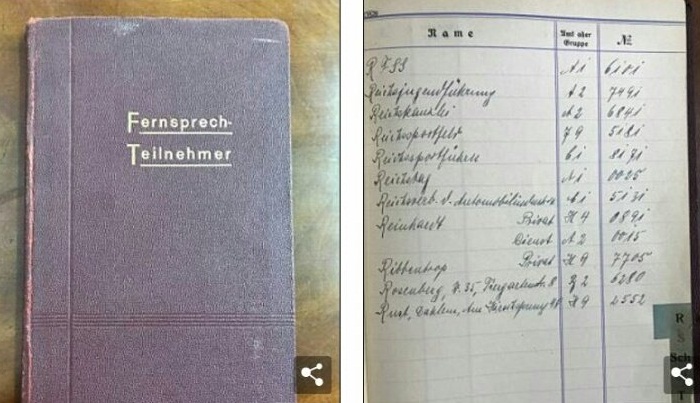 Fernsprech-
Teilnehmer
Name Amt oder Gruppe №
RFSS A1 6101
Reichsjugendführung A2 7491
Reichskanzlei A2 6841
Reichssportfeld J9 5181
Reichssportführer 8171
Reichstag A1 0025
Reichsverb. d. Automobilindustrie 5131
Reinhardt Privat H4 0891
Dienst A2 0015
Ribbentrop Privat H9 7705
Rosenberg, W.35, Tiergartenstr. 8 B2 6280
Rust, Dahlem, H9 2552
R
S
Sch
T